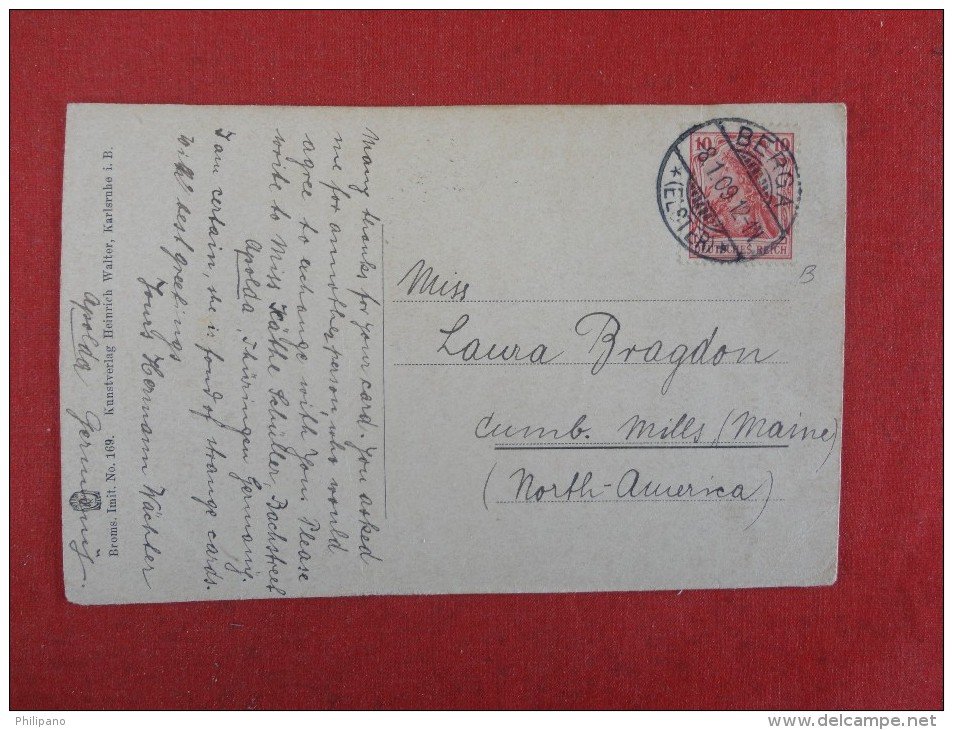 Many thanks for your card. You asked
me for annother person who would
agree to exchange with you. Please
write to Miss Käthe Schüller, Bachstreet
Apolda, Thüringen Germany.
I am certain, she is fond of strange cards.
With best greetings
Yours Hermann Wächter
Apolda Germany.
Broms. Imit. No. 169. Kunstverlag Heinrich Walter, Karlsruhe i. B.
10 10
DEUTSCHES REICH
BERGA
8.1.09.12-1N.
*(ELSTER)*
B
Miss
Laura Bragdon
Cumb. Mills (Maine)
(North-America)
Philipano
delcampe.net